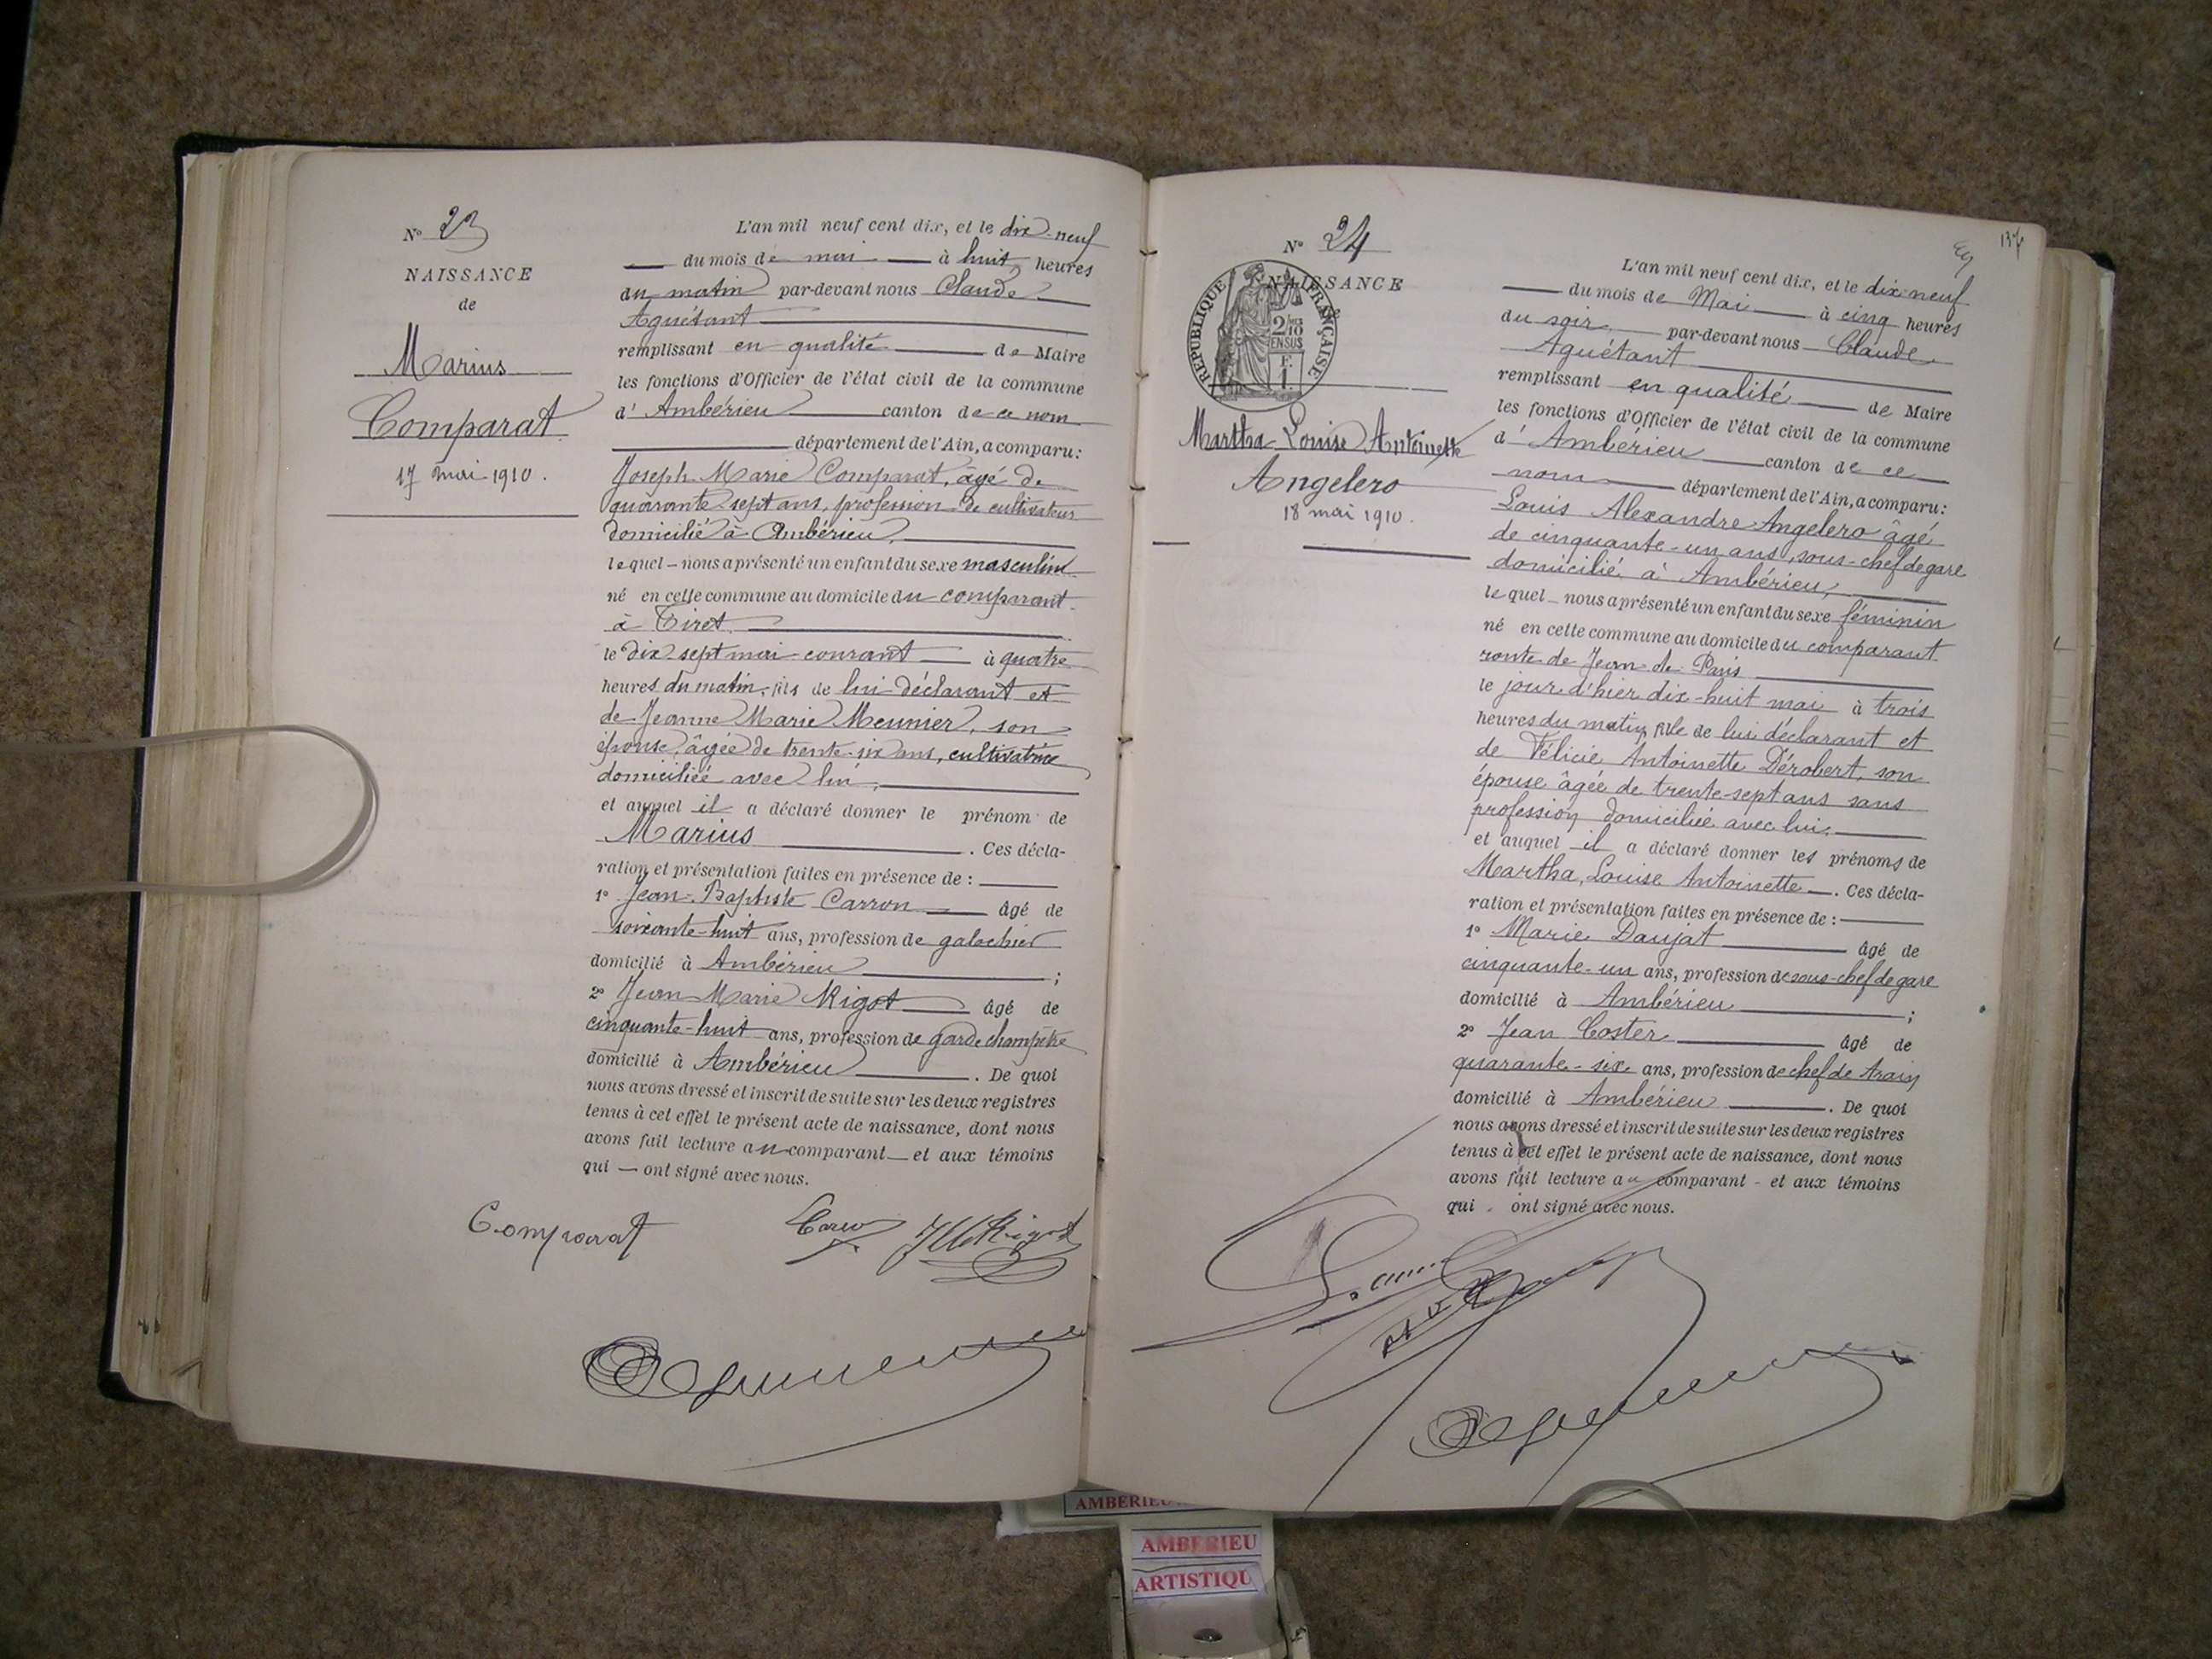 N° 23
NAISSANCE
de
Marius
Comparat
17 mai 1910.
L'an mil neuf cent dix, et le dix-neuf
du mois de mai à huit heures
du matin par-devant nous Claude
Aguétant
remplissant en qualité de Maire
les fonctions d'Officier de l'état civil de la commune
d'Ambérieu canton de ce nom
département de l'Ain, a comparu:
Joseph Marie Comparat, âgé de
quarante sept ans, profession de cultivateur
domicilié à Ambérieu,
lequel nous a présenté un enfant du sexe masculin
né en cette commune au domicile du comparant
à Tiret
le dix sept mai courant à quatre
heures du matin, fils de lui déclarant et
de Jeanne Marie Meunier, son
épouse, âgée de trente-six ans, cultivatrice
domiciliée avec lui,
et auquel il a déclaré donner le prénom de
Marius . Ces décla-
ration et présentation faites en présence de :
1° Jean-Baptiste Carron âgé de
soixante-huit ans, profession de galochier
domicilié à Ambérieu ;
2° Jean Marie Rigot âgé de
cinquante-huit ans, profession de garde champêtre
domicilié à Ambérieu . De quoi
nous avons dressé et inscrit de suite sur les deux registres
tenus à cet effet le présent acte de naissance, dont nous
avons fait lecture au comparant et aux témoins
qui ont signé avec nous.
Comparat JM Rigot
137
N° 24
NAISSANCE
RÉPUBLIQUE FRANÇAISE
Martha Louise Antoinette
Angelero
18 mai 1910.
L'an mil neuf cent dix, et le dix neuf
du mois de Mai à cinq heures
du soir par-devant nous Claude
Aguétant
remplissant en qualité de Maire
les fonctions d'Officier de l'état civil de la commune
d'Ambérieu canton de ce
nom département de l'Ain, a comparu:
Louis Alexandre Angelero âgé
de cinquante-un ans, sous-chef de gare
domicilié à Ambérieu,
lequel nous a présenté un enfant du sexe féminin
né en cette commune au domicile du comparant
route de Jean de Paris
le jour d'hier dix-huit mai à trois
heures du matin, fille de lui déclarant et
de Félicie Antoinette Dérobert, son
épouse âgée de trente-sept ans sans
profession domiciliée avec lui.
et auquel il a déclaré donner les prénoms de
Martha, Louise Antoinette . Ces décla-
ration et présentation faites en présence de :
1° Marie Daujat âgé de
cinquante-un ans, profession de sous-chef de gare
domicilié à Ambérieu ;
2° Jean Coster âgé de
quarante-six ans, profession de chef de train
domicilié à Ambérieu . De quoi
nous avons dressé et inscrit de suite sur les deux registres
tenus à cet effet le présent acte de naissance, dont nous
avons fait lecture au comparant - et aux témoins
qui ont signé avec nous.
AMBERIEU
AMBERIEU
ARTISTIQU